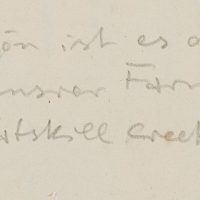 ön ist es a
unsrer Farm
tskill Creek